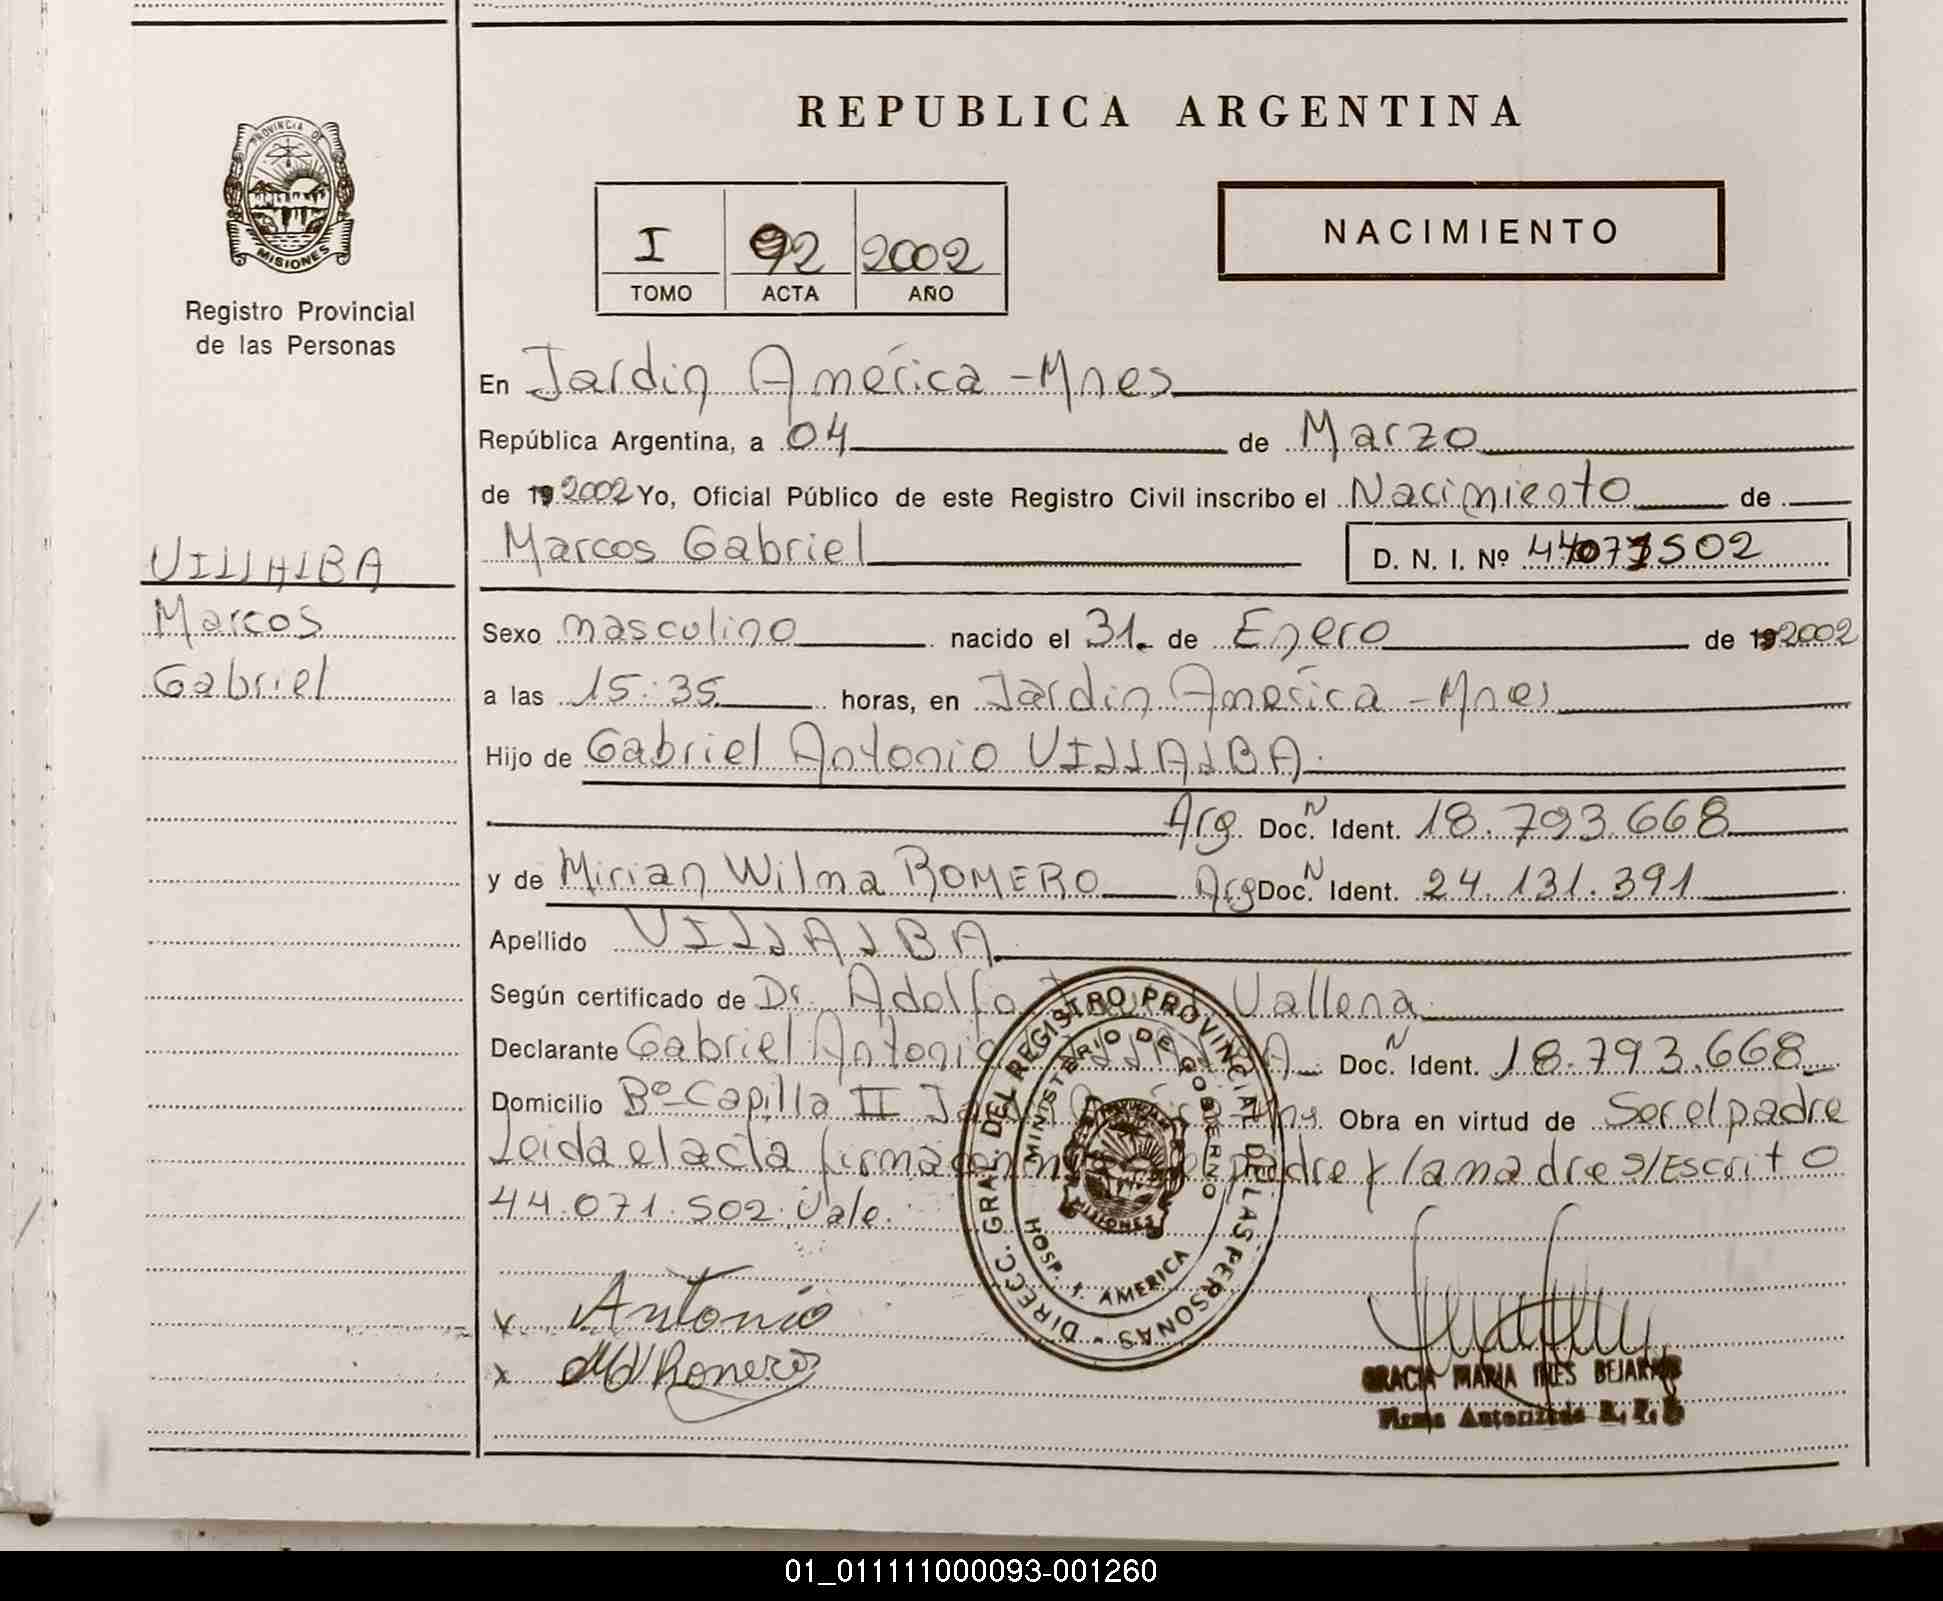 REPUBLICA ARGENTINA
PROVINCIA DE
MISIONES
Registro Provincial
de las Personas
I 92 2002
TOMO ACTA AÑO
NACIMIENTO
En Jardin América - Mnes
República Argentina, a 04 de Marzo
de 19 2002 Yo, Oficial Público de este Registro Civil inscribo el Nacimiento de
Marcos Gabriel D. N. I. Nº 44071502
VILLALBA
Marcos
Gabriel
Sexo masculino nacido el 31. de Enero de 19 2002
a las 15:35 horas, en Jardin América - Mnes
Hijo de Gabriel Antonio VILLALBA
Arg Doc. N Ident. 18.793.668
y de Mirian Wilma ROMERO Arg Doc. N Ident. 24.131.391
Apellido VILLALBA
Según certificado de Dr. Adolfo Vallena
Declarante Gabriel Antonio VILLALBA Doc. N Ident. 18.793.668
Domicilio Bº Capilla II Jardin América Mnes Obra en virtud de Ser el padre
Leida el acta firman padre y la madre S/Escrito
44.071.502. Vale.
DIRECC. GRAL. DEL REGISTRO PROVINCIAL DE LAS PERSONAS
MINISTERIO DE GOBIERNO
MISIONES
HOSP. J. AMERICA
x Antonio
x MW Romero
GRACIA MARIA INES BEJARANO
Firma Autorizada R. P. P
01_011111000093-001260